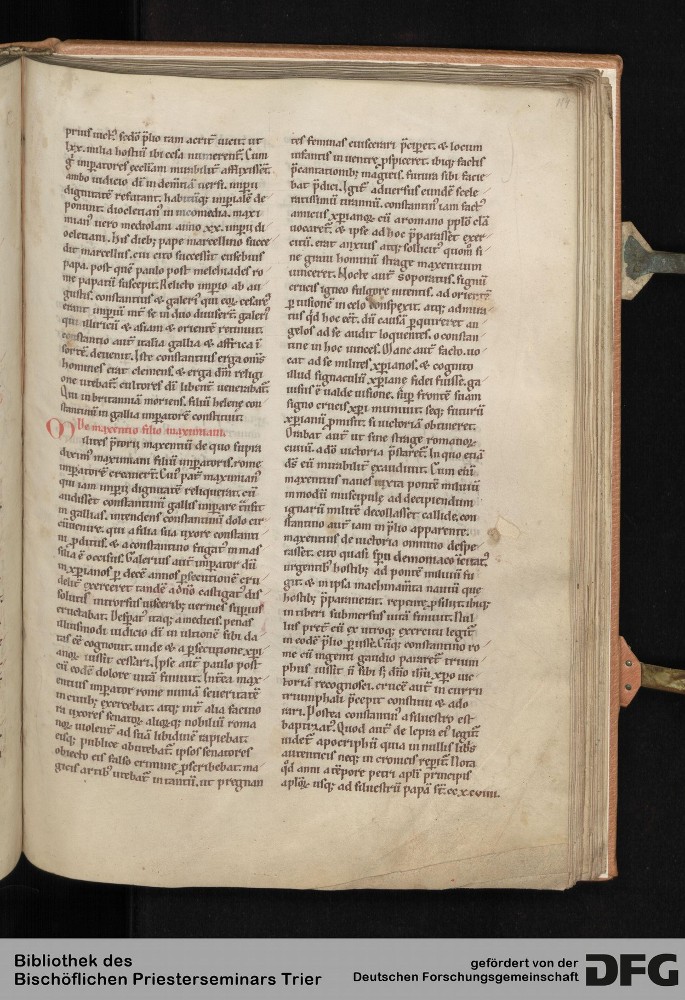 114
prius uict᷒ sedo p̄lio tam acrit̄ uicit. ut
lxx. milia hostiū ibi cesa numerent̄. Cum
g̊ imp̄atores eccl̄iam mirabilit̄ afflixissēt.
ambo iudicio dī in demītiā uersi. imp̄ii
dignitatē refutant. habitūq; imp̄ialē de
ponunt. dioclecian᷒ in nicomedia. maxi
mian᷒ uero mediolani anno .xx. imp̄ii di
ocletiani. his dieb; pape marcellino succe
dit marcellus. cui cito successit eusebius
papa. post quē paulo post melchiades ro
me papatū suscepit. Relicto imp̄io ab au
gustis. constantius & galeri᷒ qui eoꝝ cesares
erant imp̄iū int̄ se in duo diuisert̄. galeri᷒
qui illiricū & asiam & orientē retinuit.
constantio autē italia gallia & affrica ī
sortē deuenit. Iste constantius erga om̄s
homines erat clemens. & erga dm̄ religi
one utebat̄. cultores dī libent̄ uenerabat̄.
Qui in britannia moriens. filiū helene con
stantinū in gallia imp̄atorē constituit.
De maxentio filio maximiani.
Milites p̄torij maxentiū de quo supra
diximus maximiani filiū imp̄atoris. rome
imp̄atorē creauert̄. Cui᷒ pat̄ maximian᷒
qui iam imp̄ii dignitatē reliquerat. cū
audisset constantinū gallis imp̄are t̄nsiit
in gallias. intendens constantinū dolo cir
cūuenire. qui a filia sua uxore constanti
ni p̄ditus. & a constantino fugat᷒ in mas
silia ē occisus. Galerius aut̄ imp̄ator dū
in xp̄ianos p̄ decē annos p̄secutionē cru
delit̄ exerceret tandē a dn̄o castigat᷒ dis
solutis introrsus uisceribꝫ uermes
eructabat. Desparat᷒ itaq; a medicis. penas
illiusmodi iudicio dī in ultionē sibi da
tas eē cognouit. unde & a p̄secutione xp̄i
anoꝝ iussit cessari. Ipse aut̄ paulo post
cū eodē dolore uitā finiuit. Int̄ea max
entius imp̄ator rome nimiā seueritatē
in ciuibꝫ exercebat. atq; int̄ alia facino
ra uxores senatoꝝ aliorūq; nobiliū roma
noꝝ uiolent̄ ad suā libidinē rapiebat.
eisq; publice abutebat̄. ipsos senatores
obiecto eis falso crimine p̄scribebat. ma
gicis artib᷒ utebat̄ in tantū. ut pregnan
tes feminas euiscerari p̄cip̄et. & locum
infantis in uentre p̄spiceret. ibiq; factis
p̄cantationibꝫ magicis. futura sibi facie
bat p̄dici. Igit̄ aduersus eundē scele
ratissimū tirannū. constantin᷒ iam fact᷒
amicus xp̄ianoꝝ cū a romano pplō clā
uocaret̄. & ipse ad hoc p̄parasset exer
citū. erat anxius atq; sollicit᷒ quom̄ si
ne graui hominū strage maxentium
uinceret. Nocte aut̄ soporatus. signū
crucis igneo fulgore nitentis. ad orientē
p̄ uisionē in celo conspexit. atq; admira
tus qd̄ hoc eēt. dū causā p̄quireret an
gelos ad se audit loquentes. o constan
tine in hoc uinces. Mane aut̄ facto. uo
cat ad se milites xp̄ianos. & cognito
illud signaculū xp̄iane fidei fuisse. ga
uisus ē ualde uisione. sup̄ frontē suam
signo crucis xp̄i muniuit. seq; futurū
xp̄ianū p̄misit. si uictoriā obtineret.
Orabat aut̄ ut sine strage romanoꝝ
ciuiū. a dō uictoria p̄staret̄. In quo etiā
dn̄s eū mirabilit̄ exaudiuit. Cum enī
maxentius naues iuxta pontē muluiū
in modū muscipule ad decipiendum
ignarū militē decollasset callide. con
stantino aut̄ iam in p̄lio apparente.
maxentius de uictoria omnino despe
rasset. cito quasi sp̄u demoniaco icitat᷒
urgentibꝫ hostibꝫ ad pontē muluiū fu
git. & in ipsa machinam̄ta nauiū que
hostibꝫ p̄parauerat. repente p̄siluit. ibiq;
in tiberi submersus uitā finiuit. Nul
lus p̄ter eū ex utroq; exercitu legit̄
in eodē p̄lio p̄isse. Cūq; constantino ro
me cū ingenti gaudio pararet̄ trium
phus iussit n̄ sibi sꝫ dn̄o ih̄u xp̄o uic
toriā recognosci. crucē aut̄ in curru
triumphali p̄cepit constitui & ado
rari. Postea constantin᷒ a siluestro est
baptizat᷒. Quod aut̄ de lepra ei᷒ legit̄
uidet̄ apocriphū quia in nullis libris
autenticis neq; in cronicis rep̄it̄. Nota
qd̄ anni a tēpore petri apl̄i principis
apl̄oꝝ usq; ad siluestrū papā st̄. cc.x.c.uiiii.
Bibliothek des
Bischöflichen Priesterseminars Trier
gefördert von der
Deutschen Forschungsgemeinschaft
DFG